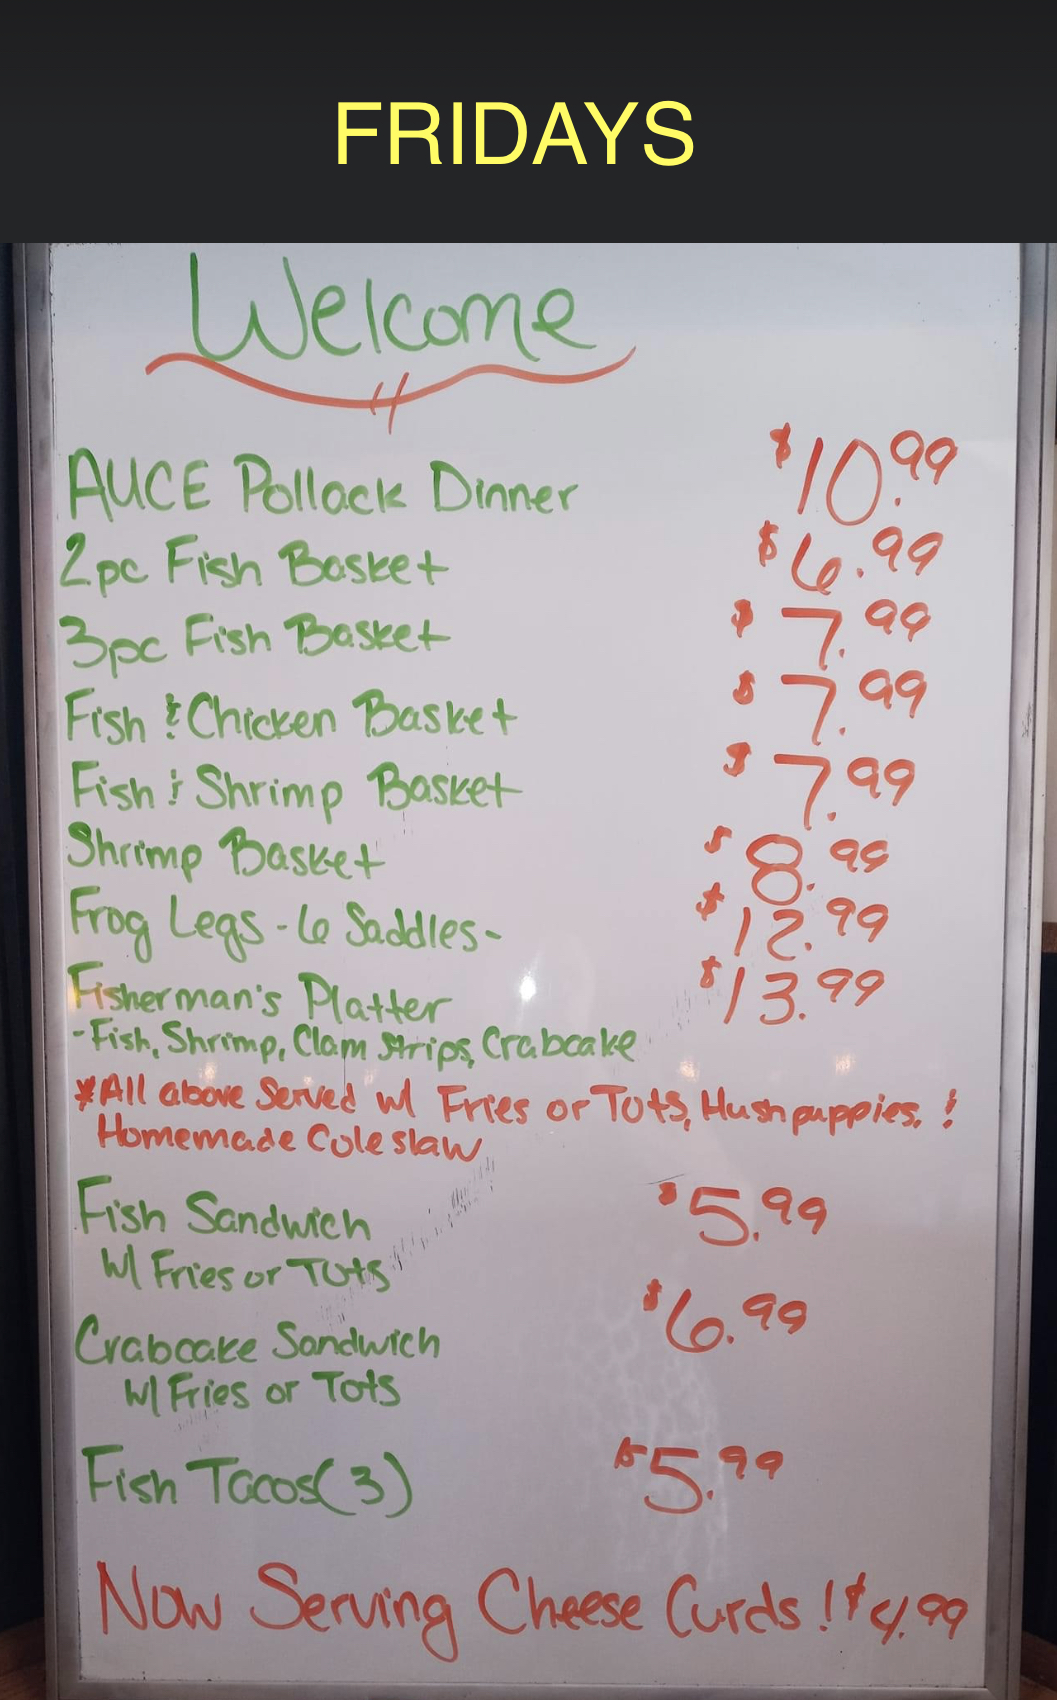 FRIDAYS
Welcome
AUCE Pollack Dinner $10.99
2pc Fish Basket $6.99
3pc Fish Basket $7.99
Fish & Chicken Basket $7.99
Fish & Shrimp Basket $7.99
Shrimp Basket $8.99
Frog Legs - 6 Saddles - $12.99
Fisherman's Platter $13.99
- Fish, Shrimp, Clam Strips, Crabcake
*All above Served w/ Fries or Tots, Hushpuppies, &
Homemade Coleslaw
Fish Sandwich $5.99
w/ Fries or Tots
Crabcake Sandwich $6.99
w/ Fries or Tots
Fish Tacos (3) $5.99
Now Serving Cheese Curds! $4.99